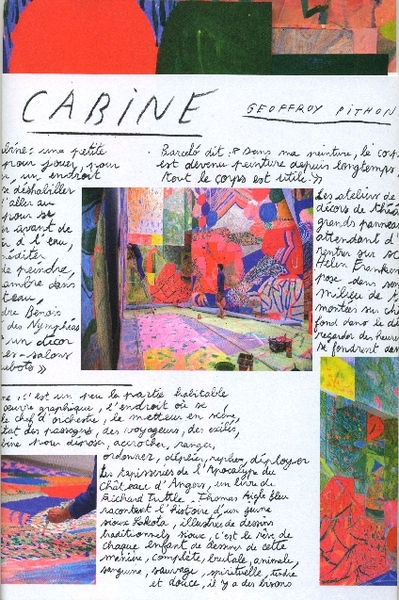 CABINE
GEOFFROY PITHON
bine : une petite
pour jouer, pour
un endroit
se déshabiller
d'aller au
pour se
avant de
d'eau,
méditer
de peindre,
ambre dans
teau,
dre Benois
des Nymphéas
un décor
es-salons
ubots »
Barceló dit : « Dans ma peinture, le corps
est devenu peinture depuis longtemps,
tout le corps est utile. »
Les ateliers de
décors de théâ
grands panneau
attendant d'
rentrer sur sc
Helen Franken
pose dans son
milieu de t
montées sur ch
fond dans le dé
regarder des heures
se fondrent dan
ne, c'est un peu la partie habitable
oeuvre graphique, l'endroit où se
le chef d'orchestre, le metteur en scène,
tat des passages, des voyageurs, des exilés,
bine pour disposer, accrocher, ranger,
ordonner, déplier, replier, déployer
Les tapisseries de l'Apocalypse du
Château d'Angers, un livre de
Richard Tuttle. Thomas Aigle Bleu
racontent l'histoire d'un jeune
sioux Lakota, illustrés de dessins
traditionnels sioux, c'est le rêve de
chaque enfant de dessiner de cette
manière, complète, brutale, animale,
sanguine, sauvage, spirituelle, tendre
et douce, il y a des bisons